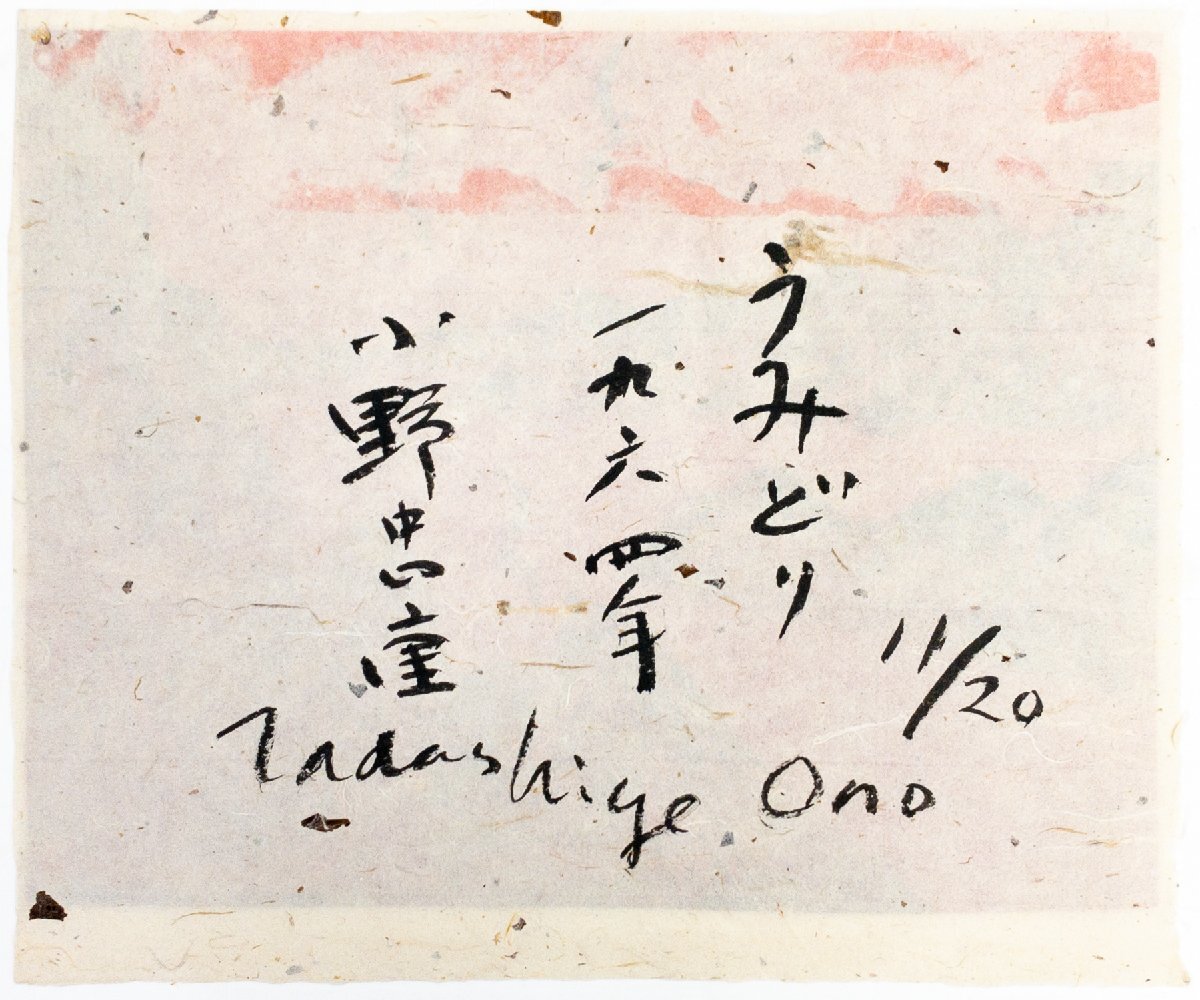 うみどり
一九六四年
小野忠重
11/20
Tadashige Ono